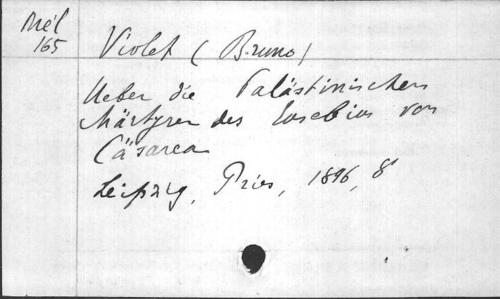 Mél
165
Violet (Bruno)
Ueber die Palästinischen
Märtyrer des Eusebios von
Cäsarea
Leipzig, Pries, 1896, 8°